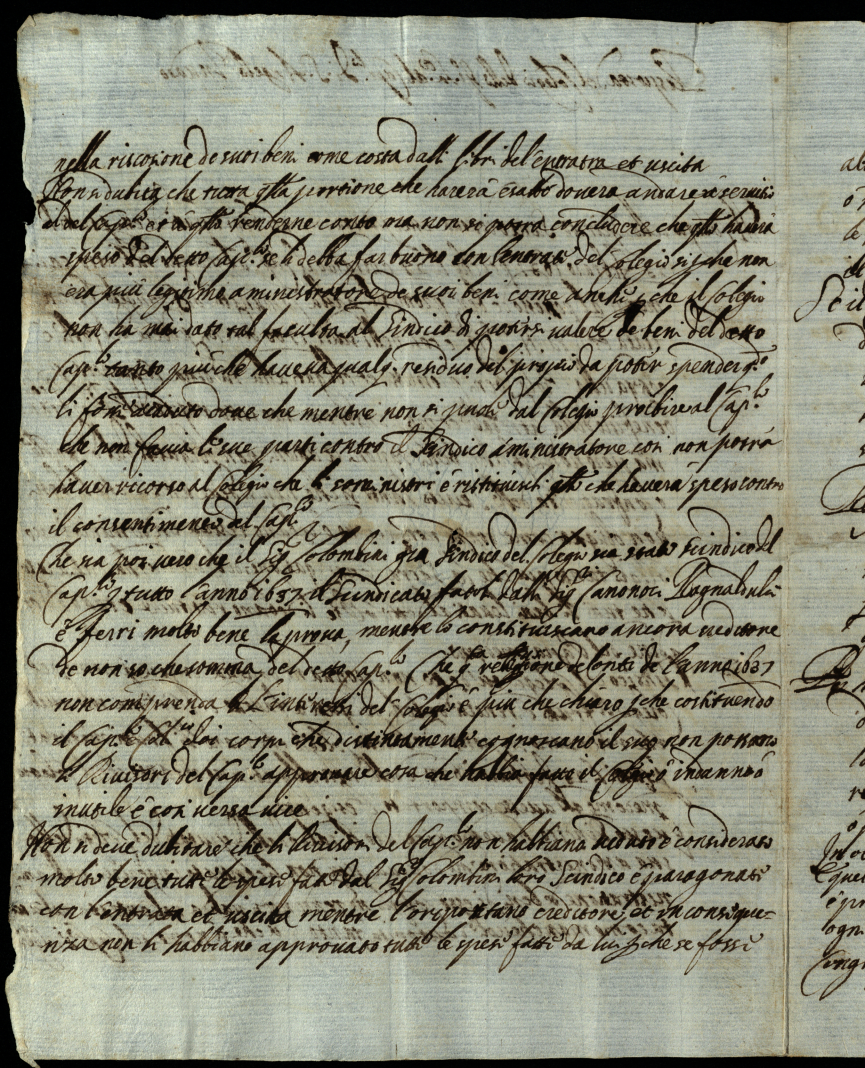 nella riscosione de suoi beni come costa dalli libri del'entrata et uscita
Non si dubita che tutta q.lla portione che haverà esatto doverà andare à servitio
del Cap.lo et à q.llo renderne conto ma non si potrà concludere che q.llo haverà
speso del detto Cap.lo se li debba far buono con l'entrate del Colegio si che non
era più legitimo aministratore de suoi beni come anchi che il Colegio
non ha mai dato tal faculta al Sindico di potersi valere de beni del detto
Cap.lo tanto più che haveva qualq. residuo del proprio da poter spendere
li dove che mentre non si puol dal Colegio proibire al Cap.lo
che non faccia le sue parti contro il Sindico aministratore così non potrà
haver ricorso al Colegio che li soministri è ristituischi q.llo che haverà speso contro
il consentimento del Cap.lo
Che sia poi vero che il Sig. Colombini già Sindico del Colegio sia stato Scindico del
Cap.lo p tutto l'anno 1637 il Sindicato fatto dalli Sig.ri Canonoci
è Ferri molto bene la prova, mentre lo constituiscano ancora creditore
de non so che somma del detto Cap.lo Che q.a relatione de conti de l'anno 1637
non comprenda l'interessi del Colegio è più che chiaro p che costituendo
il Cap.lo è Col.o doi corpi che distintamente cognoscano il suo non possano
li Rivisori del Cap.lo approvare cosa che habbia fatta il Colegio ò in danno ò
inutile è così verso vice
Non si deve dubitare che li Rivisori del Cap.lo non habbiano veduto è considerato
molto bene tutte le spese fatte dal Sig. Colombini loro Scindico è paragonate
con l'entrata et uscita mentre creditore, et in conseque=
nza non li habbiano approvato tutte le spese fatte da lui p che se fosse